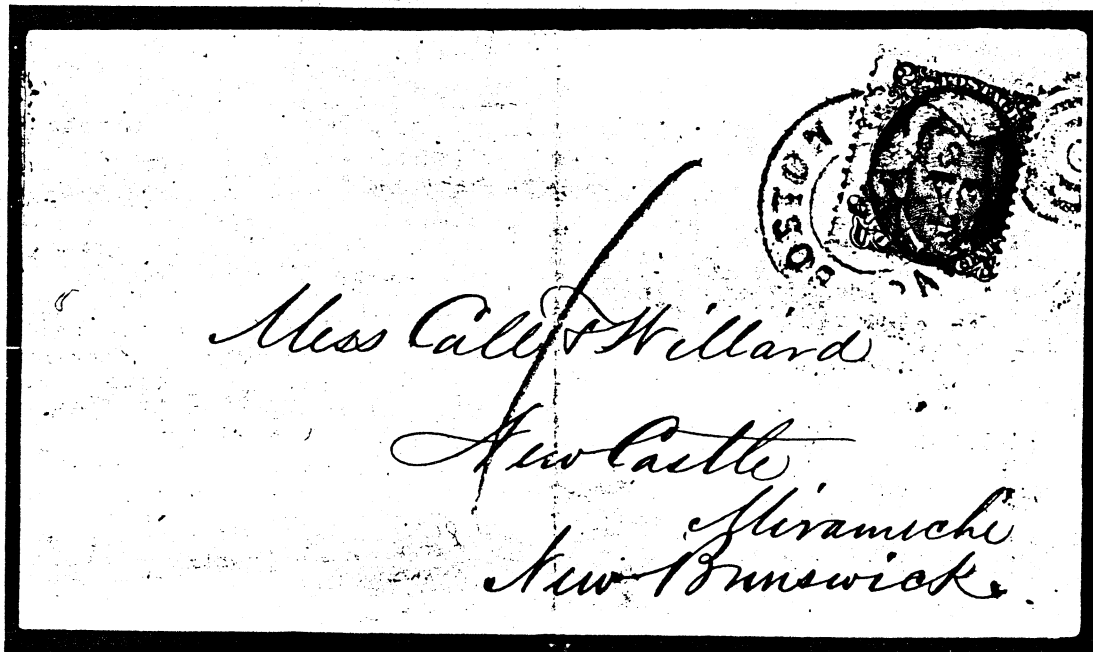 BOSTON
Mess Call & Willard
New Castle
Miramiche
New Brunswick.